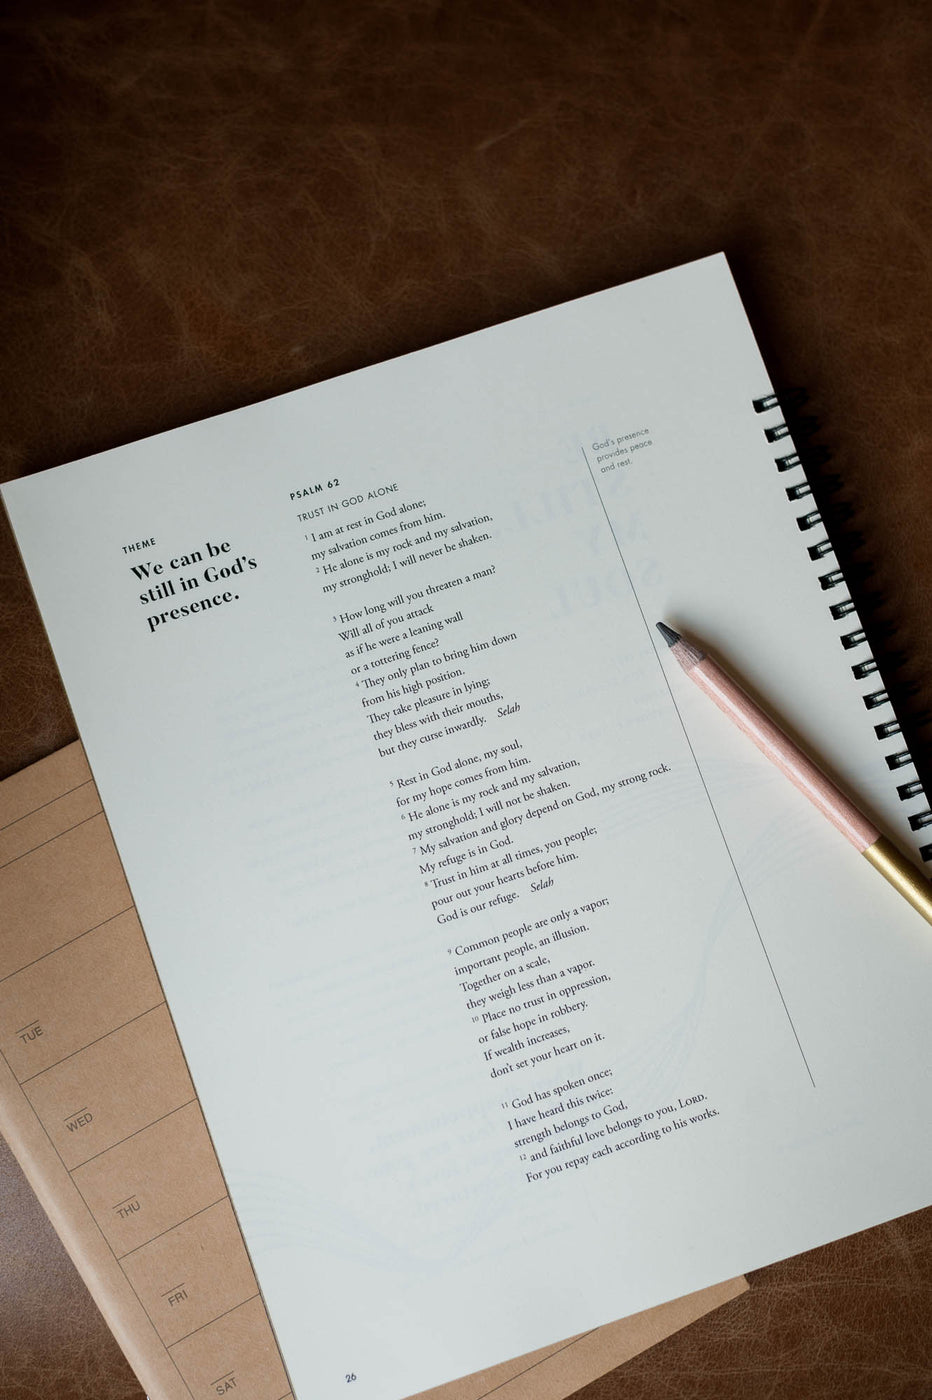 THEME
We can be
still in God's
presence.
PSALM 62
TRUST IN GOD ALONE
1 I am at rest in God alone;
my salvation comes from him.
2 He alone is my rock and my salvation,
my stronghold; I will never be shaken.
3 How long will you threaten a man?
Will all of you attack
as if he were a leaning wall
or a tottering fence?
4 They only plan to bring him down
from his high position.
They take pleasure in lying;
they bless with their mouths,
but they curse inwardly. Selah
5 Rest in God alone, my soul,
for my hope comes from him.
6 He alone is my rock and my salvation,
my stronghold; I will not be shaken.
7 My salvation and glory depend on God, my strong rock.
My refuge is in God.
8 Trust in him at all times, you people;
pour out your hearts before him.
God is our refuge. Selah
9 Common people are only a vapor;
important people, an illusion.
Together on a scale,
they weigh less than a vapor.
10 Place no trust in oppression,
or false hope in robbery.
If wealth increases,
don't set your heart on it.
11 God has spoken once;
I have heard this twice:
strength belongs to God,
12 and faithful love belongs to you, LORD.
For you repay each according to his works.
God's presence
provides peace
and rest.
26
TUE
WED
THU
FRI
SAT